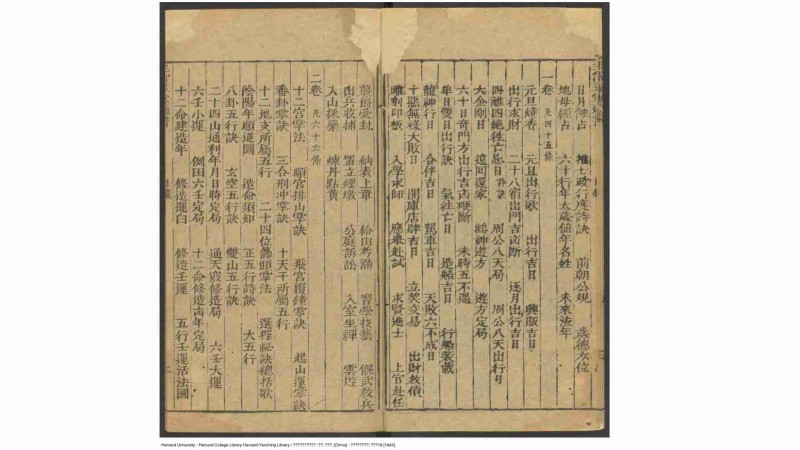 日月傳占 推七政行度詩訣 前朝公規 歲德方位
地母經占 六十行年太歲値年名姓 未來流年
一卷 凡四十五條
元旦燒香 元旦出行歌 出行吉日 興販吉日
出行求財 二十八宿出門吉凶斷 逐月出行吉日
四離四絕往亡忌日詩訣 周公八天局 周公八天出行日
大金剛日 遠囘還家 鶴神遊方 遊方定局
六十日奇門方出行吉凶斷 未時五不遇
单日雙日出行訣 氣往亡日 造船吉日 行船裝載
龍神行日 合伴吉日 駕車吉日 天敗六不成日
十惡無祿大敗日 開庫店肆吉日 立契交易 出財放債
雕刻印板 入學求師 應舉赴試 求賢進士 上官赴任
襲爵受封 納表上章 給由考滿 習學技藝 偃武敎兵
出兵收捕 置立經燉 公庭訴訟 入室坐禪 雲遊
入山採藥 煉丹點黄
二卷 凡六十六條
十二宮掌法 順宮排山掌訣 飛宮覆鐘掌訣 起山運掌訣
番卦掌訣 三合刑冲掌訣 十天干所屬五行
十二地支所屬五行 二十四位羅頭掌法 選擇祕訣總括歌
陰陽年順逆圖 造命須知 正五行詩訣 大五行
八卦五行訣 玄空五行訣 雙山五行訣
二十四山通利年月日時定局 通天竅修造局 六壬大運
六壬小運 倒田六壬定局 十二命修造凶年定局
十二命建造年 修造運白 修造壬運 五行壬運活法圖
目錄
二
Harvard University - Harvard College Library Harvard-Yenching Library / ?????????? :??, ???. [China] : ????????, ???16 [1643].